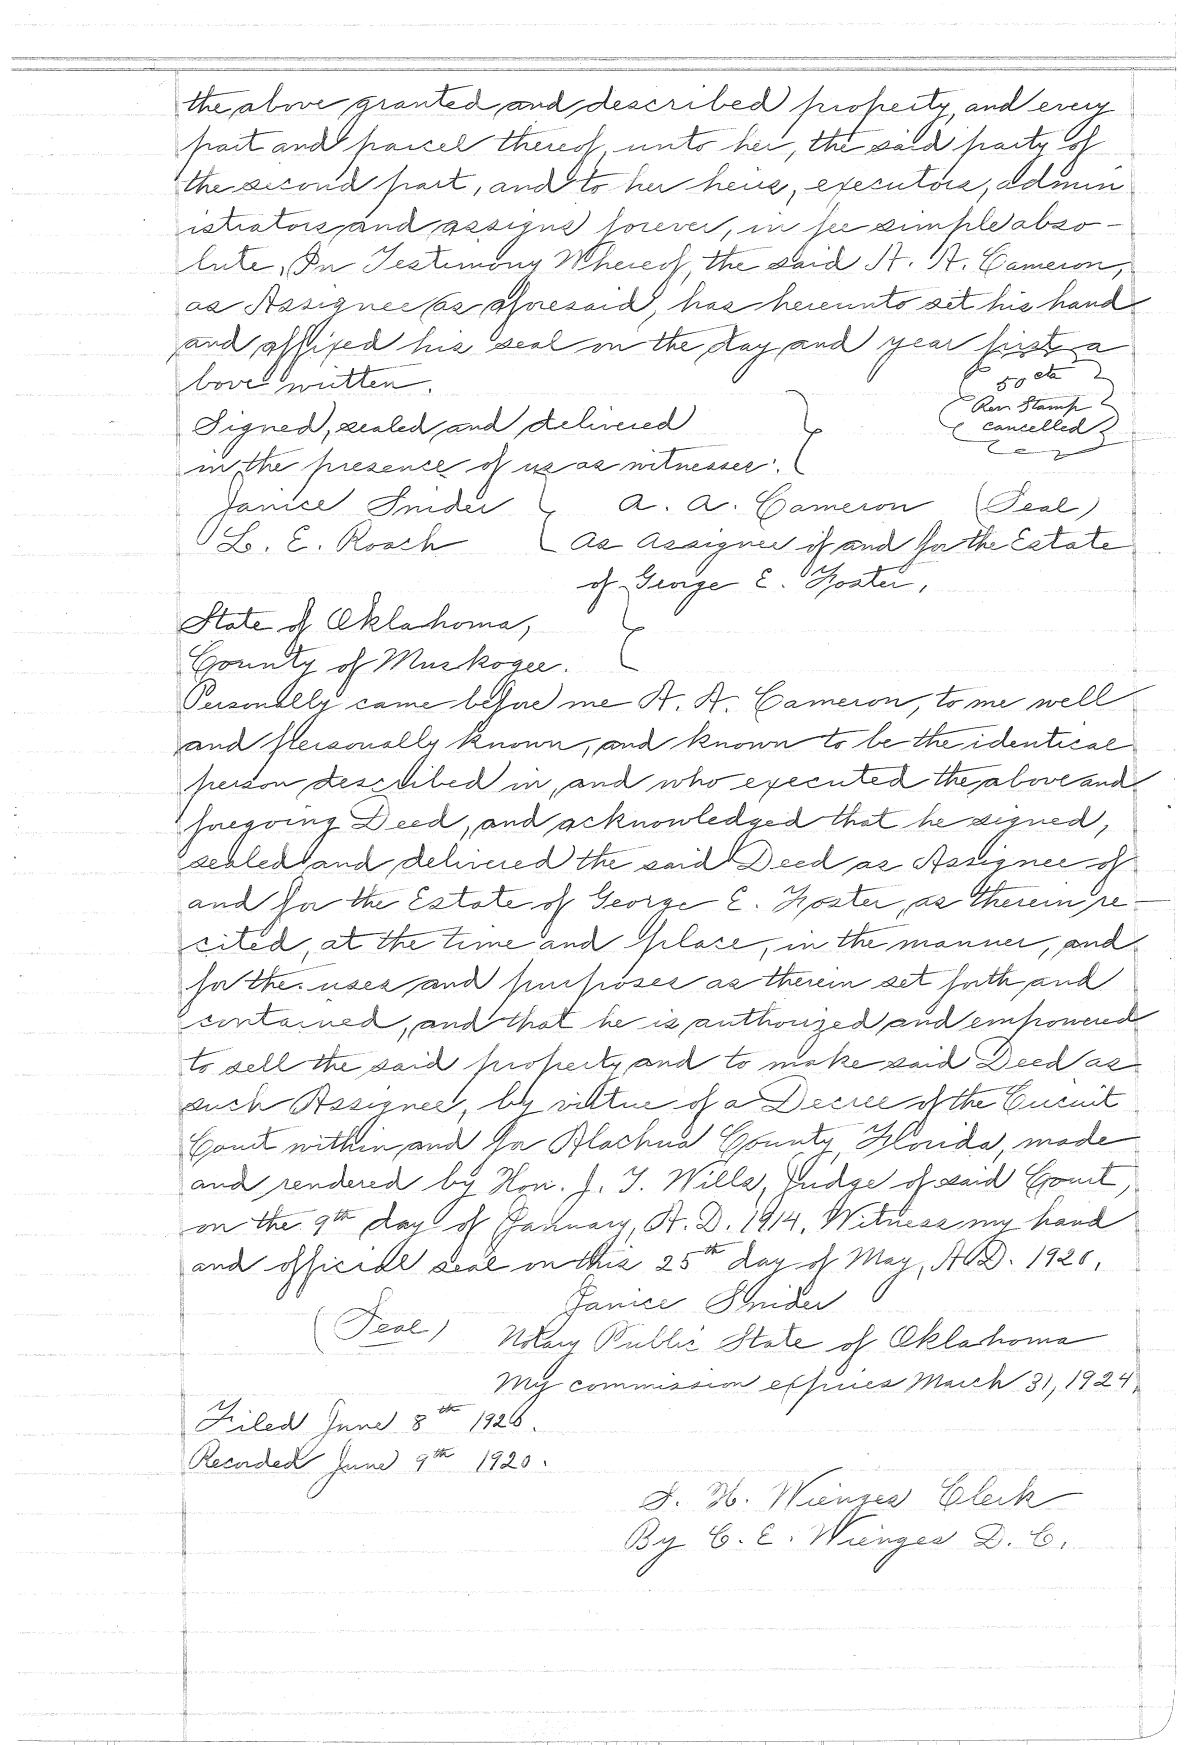 the above granted and described property, and every
part and parcel thereof, unto her, the said party of
the second part, and to her heirs, executors, admin
istrators and assigns forever, in fee simple abso-
lute, In Testimony Whereof, the said A. A. Cameron,
as Assignee as aforesaid, has hereunto set his hand
and affixed his seal on the day and year first a
bove written.
50 cts
Rev. Stamp
cancelled
Signed, sealed and delivered
in the presence of us as witnesses:
Janice Snider
A. A. Cameron (Seal)
L. E. Roach
As Assignee of and for the Estate
of George E. Foster,
State of Oklahoma,
County of Muskogee.
Personally came before me A. A. Cameron, to me well
and personally known, and known to be the identical
person described in, and who executed the above and
foregoing Deed, and acknowledged that he signed,
sealed and delivered the said Deed as Assignee of
and for the Estate of George E. Foster, as therein re-
cited, at the time and place, in the manner, and
for the uses and purposes as therein set forth and
contained, and that he is authorized and empowered
to sell the said property, and to make said Deed as
such Assignee, by virtue of a Decree of the Circuit
Court within and for Alachua County, Florida, made
and rendered by Hon. J. T. Wills, Judge of said Court,
on the 9th day of January, A. D. 1914. Witness my hand
and official seal on this 25th day of May, A. D. 1920.
Janice Snider
(Seal) Notary Public State of Oklahoma
My commission expires March 31, 1924.
Filed June 8th 1920.
Recorded June 9th 1920.
S. H. Wienges Clerk
By C. E. Wienges D. C.